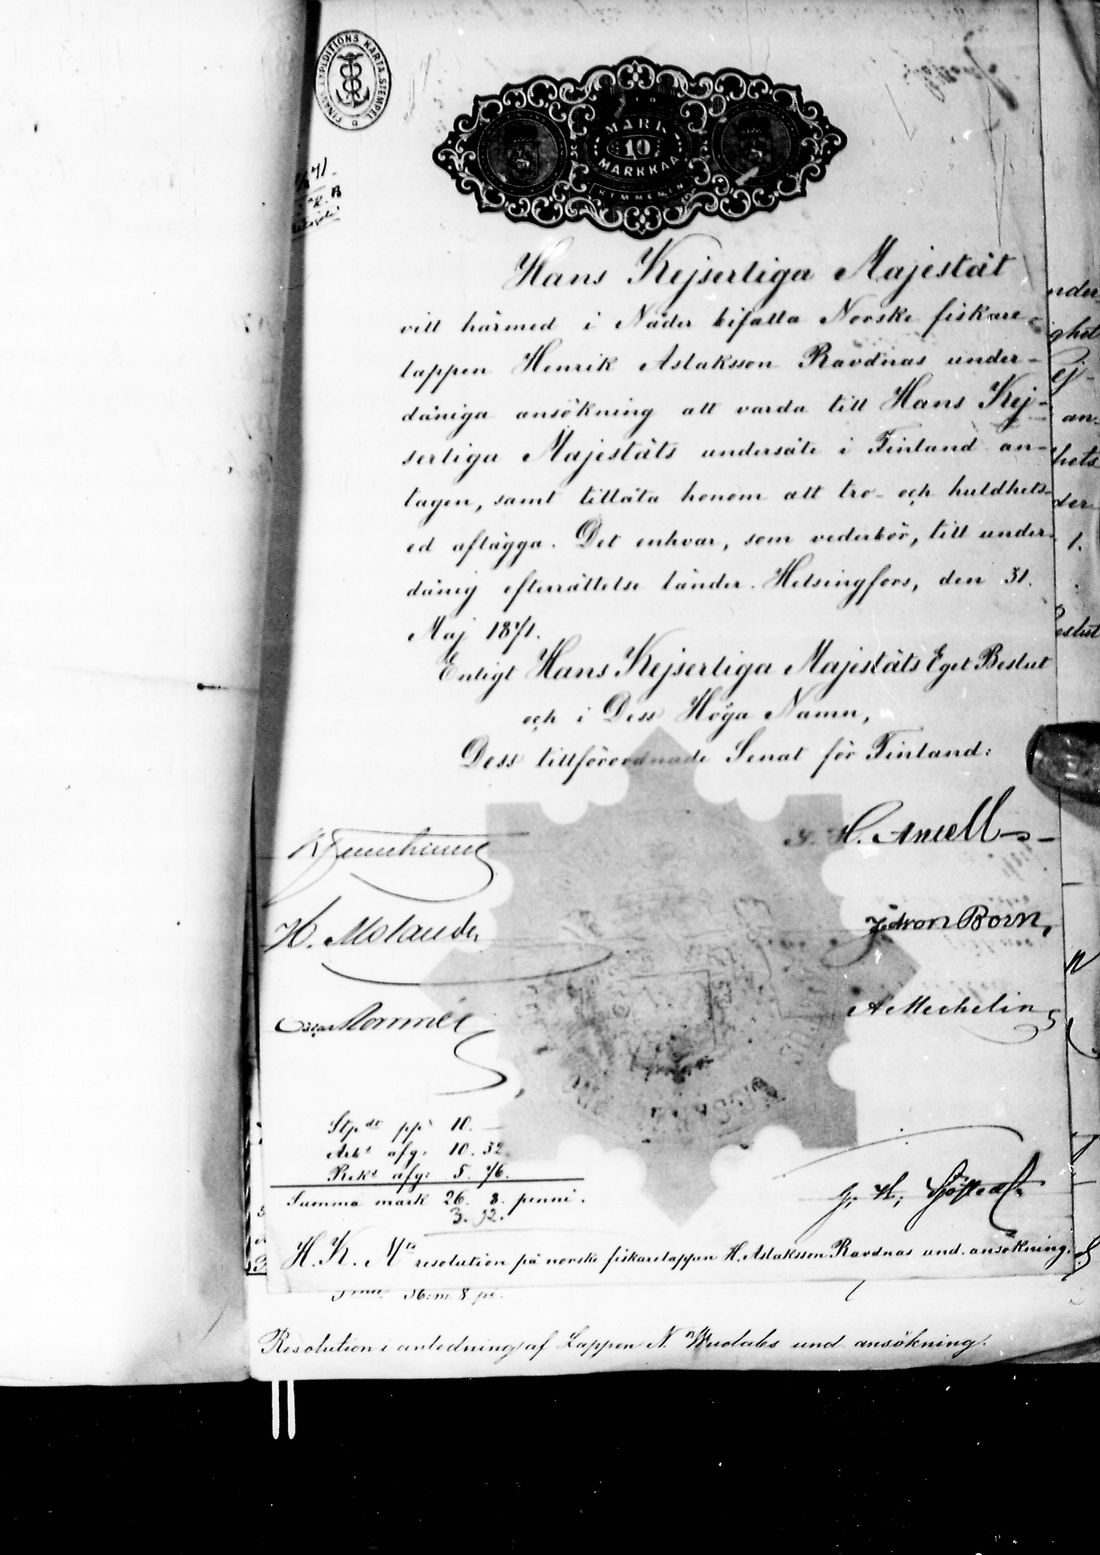 FINANS EXPEDITIONS KARTA STEMPEL
MARK
10
MARKKAA
KYMMENEN
Hans Kejserliga Majestät
vill härmed i Nåder bifalla Norske fiskare
lappen Henrik Aslaksson Ravdnas under-
dåniga ansökning att varda till Hans Kej-
serliga Majestäts undersåte i Finland an-
tagen, samt tillåta honom att tro- och huldhets-
ed aflägga. Det enhvar, som vederbör, till under-
dånig efterrättelse länder. Helsingfors, den 31.
Maj 1871.
Enligt Hans Kejserliga Majestäts Eget Beslut
och i Dess Höga Namn,
Dess tillförordnade Senat för Finland:
H. Antell
H. Molander
von Born,
Oscar Norrmén
A Mechelin
Stpdt pp 10. —
Arks afg: 10. 32.
Reks afg: 5. 76.
Summa mark 26. 8. penni.
3. 12.
H. K. Mts resolution på norske fiskarelappen H. Aslaksson Ravdnas und. ansökning.
36: m. 8 pi.
Resolution i anledning af Lappen N. und ansökning.
nder
ghet
ej-
an-
hets
der
1.
eslut